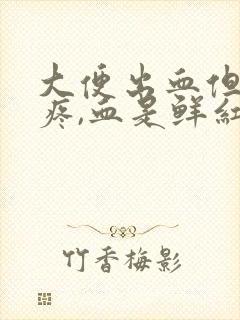 大便出血但
疼,血是鲜红
竹香梅影